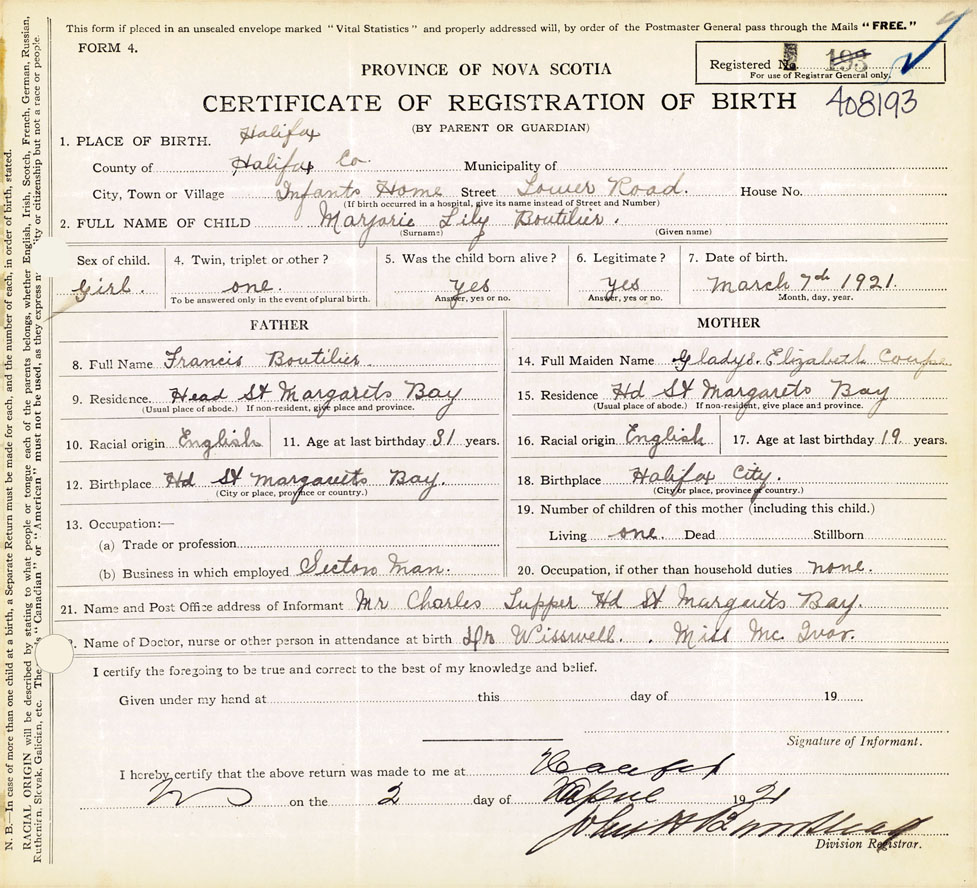 This form if placed in an unsealed envelope marked "Vital Statistics" and properly addressed will, by order of the Postmaster General pass through the Mails "FREE."
FORM 4.
Registered No. 193
For use of Registrar General only.
PROVINCE OF NOVA SCOTIA
CERTIFICATE OF REGISTRATION OF BIRTH 408193
(BY PARENT OR GUARDIAN)
1. PLACE OF BIRTH. Halifax
County of Halifax Co. Municipality of
City, Town or Village Infants Home Street Lower Road. House No.
(If birth occurred in a hospital, give its name instead of Street and Number)
2. FULL NAME OF CHILD Marjorie Lily Boutilier.
(Surname) (Given name)
Sex of child. 4. Twin, triplet or other? 5. Was the child born alive? 6. Legitimate? 7. Date of birth.
Girl. one. yes yes March 7th 1921.
To be answered only in the event of plural birth. Answer, yes or no. Answer, yes or no. Month, day, year.
FATHER MOTHER
8. Full Name Francis Boutilier. 14. Full Maiden Name Gladys. Elizabeth
9. Residence. Head St Margarets Bay 15. Residence Hd St Margarets Bay
(Usual place of abode.) If non-resident, give place and province. (Usual place of abode.) If non-resident, give place and province.
10. Racial origin English 11. Age at last birthday 31 years. 16. Racial origin English 17. Age at last birthday 19 years.
12. Birthplace Hd St Margarets Bay. 18. Birthplace Halifax City.
(City or place, province or country.) (City or place, province or country.)
13. Occupation:— 19. Number of children of this mother (including this child.)
(a) Trade or profession Living one. Dead Stillborn
(b) Business in which employed Section Man. 20. Occupation, if other than household duties none.
21. Name and Post Office address of Informant Mr Charles Tupper Hd St Margarets Bay.
. Name of Doctor, nurse or other person in attendance at birth Dr Wisswell. . Miss Mc Ivor.
I certify the foregoing to be true and correct to the best of my knowledge and belief.
Given under my hand at this day of 19
Signature of Informant.
I hereby certify that the above return was made to me at Halifax
on the 2 day of 1921
John
Division Registrar.
N. B.—In case of more than one child at a birth, a Separate Return must be made for each, and the number of each, in order of birth, stated.
RACIAL ORIGIN will be described by stating to what people or tongue each of the parents belongs, whether English, Irish, Scotch, French, German, Russian,
Ruthenian, Slovak, Galician, etc. The "Canadian" or "American" must not be used, as they express or citizenship but not a race or people.